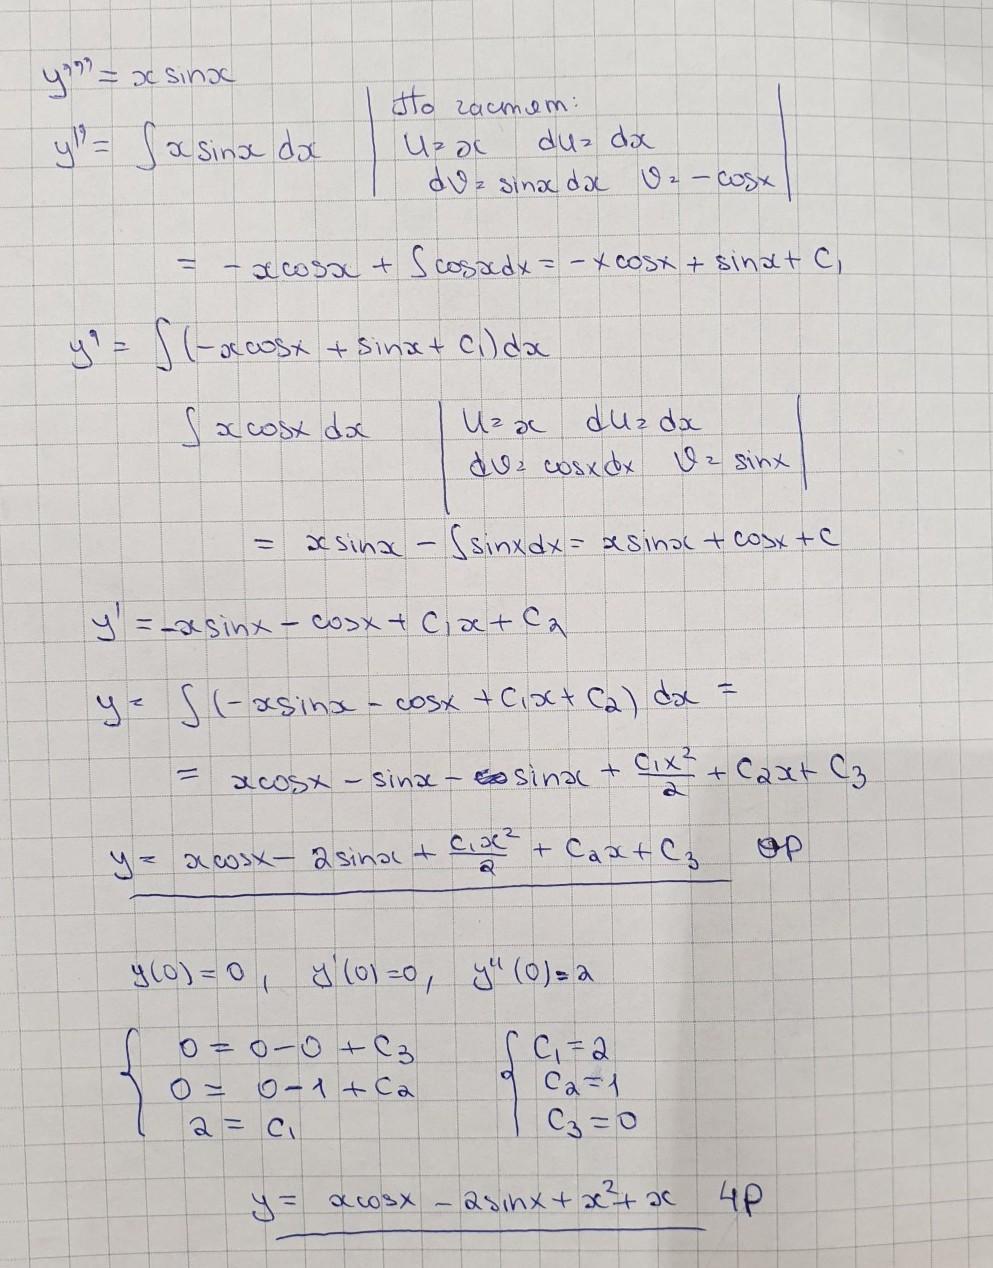 y''' = x sinx
y'' = ∫ x sinx dx
По частям:
u = x du = dx
dv = sinx dx v = - cosx
= - x cosx + ∫ cosx dx = - x cosx + sinx + C₁
y' = ∫ (-x cosx + sinx + C₁) dx
∫ x cosx dx
u = x du = dx
dv = cosx dx v = sinx
= x sinx - ∫ sinx dx = x sinx + cosx + C
y' = -x sinx - cosx + C₁x + C₂
y = ∫ (-x sinx - cosx + C₁x + C₂) dx =
= x cosx - sinx - sinx + C₁x²/2 + C₂x + C₃
y = x cosx - 2 sinx + C₁x²/2 + C₂x + C₃ ОР
y(0) = 0, y'(0) = 0, y''(0) = 2
0 = 0 - 0 + C₃
0 = 0 - 1 + C₂
2 = C₁
C₁ = 2
C₂ = 1
C₃ = 0
y = x cosx - 2 sinx + x² + x ЧР